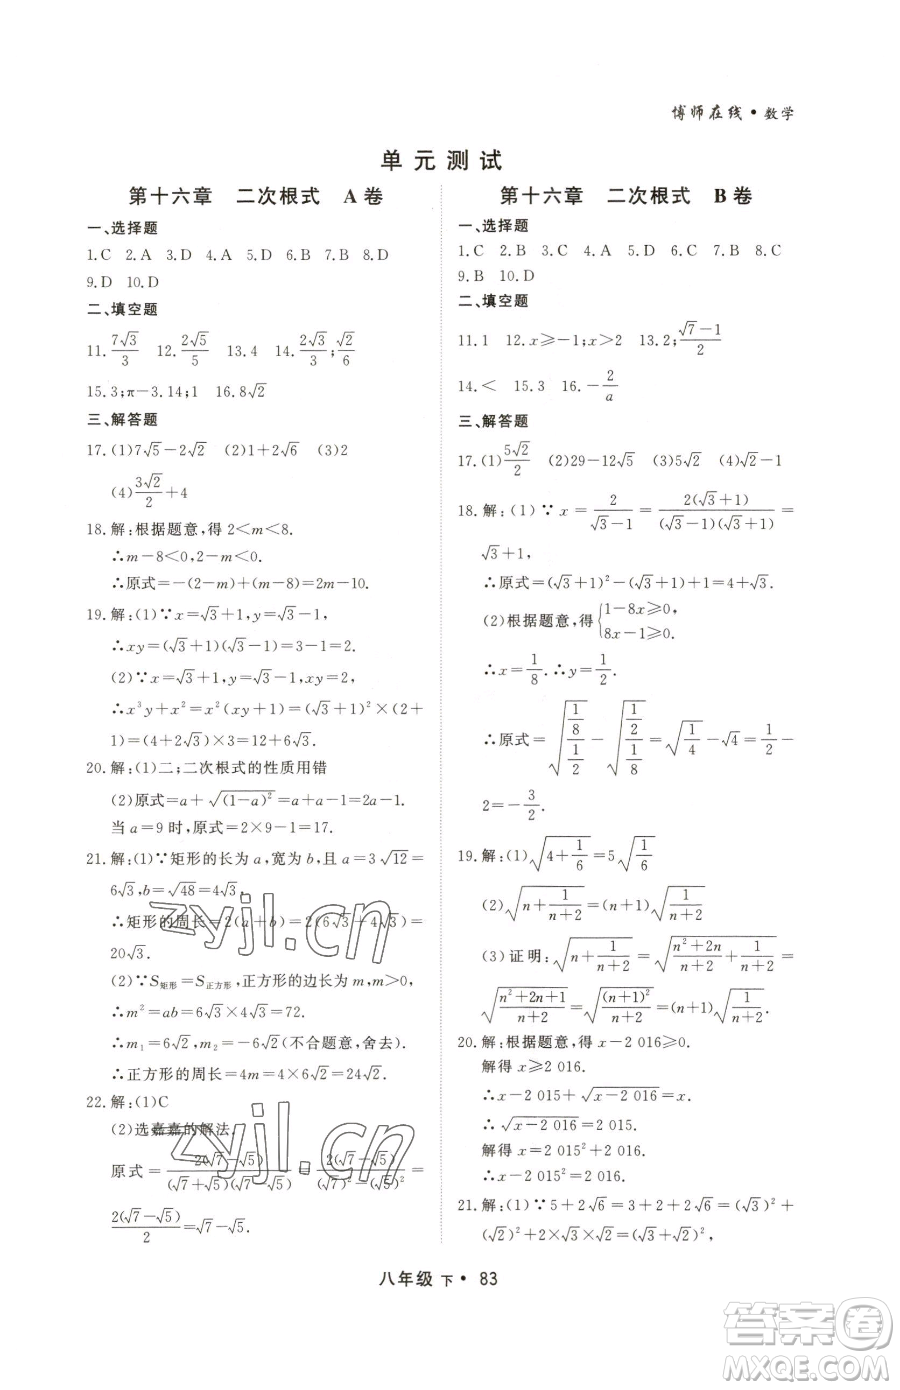 博师在线·数学
单元测试
第十六章 二次根式 A卷
一、选择题
1.C 2.A 3.D 4.A 5.D 6.B 7.B 8.D
9.D 10.D
二、填空题
11.7√3/3 12.2√5/5 13.4 14.2√3/3;√2/6
15.3;π-3.14;1 16.8√2
三、解答题
17.(1)7√5-2√2 (2)1+2√6 (3)2
(4)3√2/2+4
18.解:根据题意,得 2<m<8.
∴m-8<0,2-m<0.
∴原式=-(2-m)+(m-8)=2m-10.
19.解:(1)∵x=√3+1,y=√3-1,
∴xy=(√3+1)(√3-1)=3-1=2.
(2)∵x=√3+1,y=√3-1,
∴x³y+x²=x²(xy+1)=(√3+1)²×(2+
1)=(4+2√3)×3=12+6√3.
20.解:(1)二;二次根式的性质用错
(2)原式=a+√(1-a)²=a+a-1=2a-1.
当a=9时,原式=2×9-1=17.
21.解:(1)∵矩形的长为a,宽为b,且a=3√12=
6√3,b=√48=4√3,
∴矩形的周长=2(a+b)=2(6√3+4√3)=
20√3.
(2)∵S矩形=S正方形,正方形的边长为m,m>0,
∴m²=ab=6√3×4√3=72.
∴m₁=6√2,m₂=-6√2(不合题意,舍去).
∴正方形的周长=4m=4×6√2=24√2.
22.解:(1)C
(2)选嘉嘉的解法.
原式=2(√7-√5)/(√7+√5)(√7-√5)=2(√7-√5)/(√7)²-(√5)²=
2(√7-√5)/2=√7-√5.
第十六章 二次根式 B卷
一、选择题
1.C 2.B 3.D 4.C 5.B 6.D 7.B 8.C
9.B 10.D
二、填空题
11.1 12.x≥-1;x>2 13.2;√7-1/2
14.< 15.3 16.-2/a
三、解答题
17.(1)5√2/2 (2)29-12√5 (3)5√2 (4)√2-1
18.解:(1)∵x=2/√3-1=2(√3+1)/(√3-1)(√3+1)=
√3+1,
∴原式=(√3+1)²-(√3+1)+1=4+√3.
(2)根据题意,得{1-8x≥0,
8x-1≥0.
∴x=1/8.∴y=1/2.
∴原式=√(1/8)/(1/2)-√(1/2)/(1/8)=√1/4-√4=1/2-
2=-3/2.
19.解:(1)√4+1/6=5√1/6
(2)√n+1/n+2=(n+1)√1/n+2
(3)证明:√n+1/n+2=√n²+2n/n+2+1/n+2
=√n²+2n+1/n+2=√(n+1)²/n+2=(n+1)√1/n+2.
20.解:根据题意,得x-2 016≥0.
解得x≥2 016.
∴x-2 015+√x-2 016=x.
∴√x-2 016=2 015.
解得x=2 015²+2 016.
∴x-2 015²=2 016.
21.解:(1)∵5+2√6=3+2+2√6=(√3)²+
(√2)²+2×√3×√2=(√3+√2)²,
八年级 下·83
zyjl.cn
zyjl.cn
答案圈
MXQE.COM